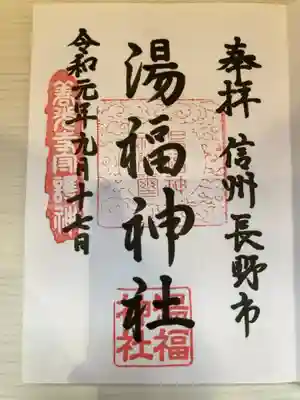 奉拝 信州長野市
湯福神社
令和元年九月十七日
湯福
神社